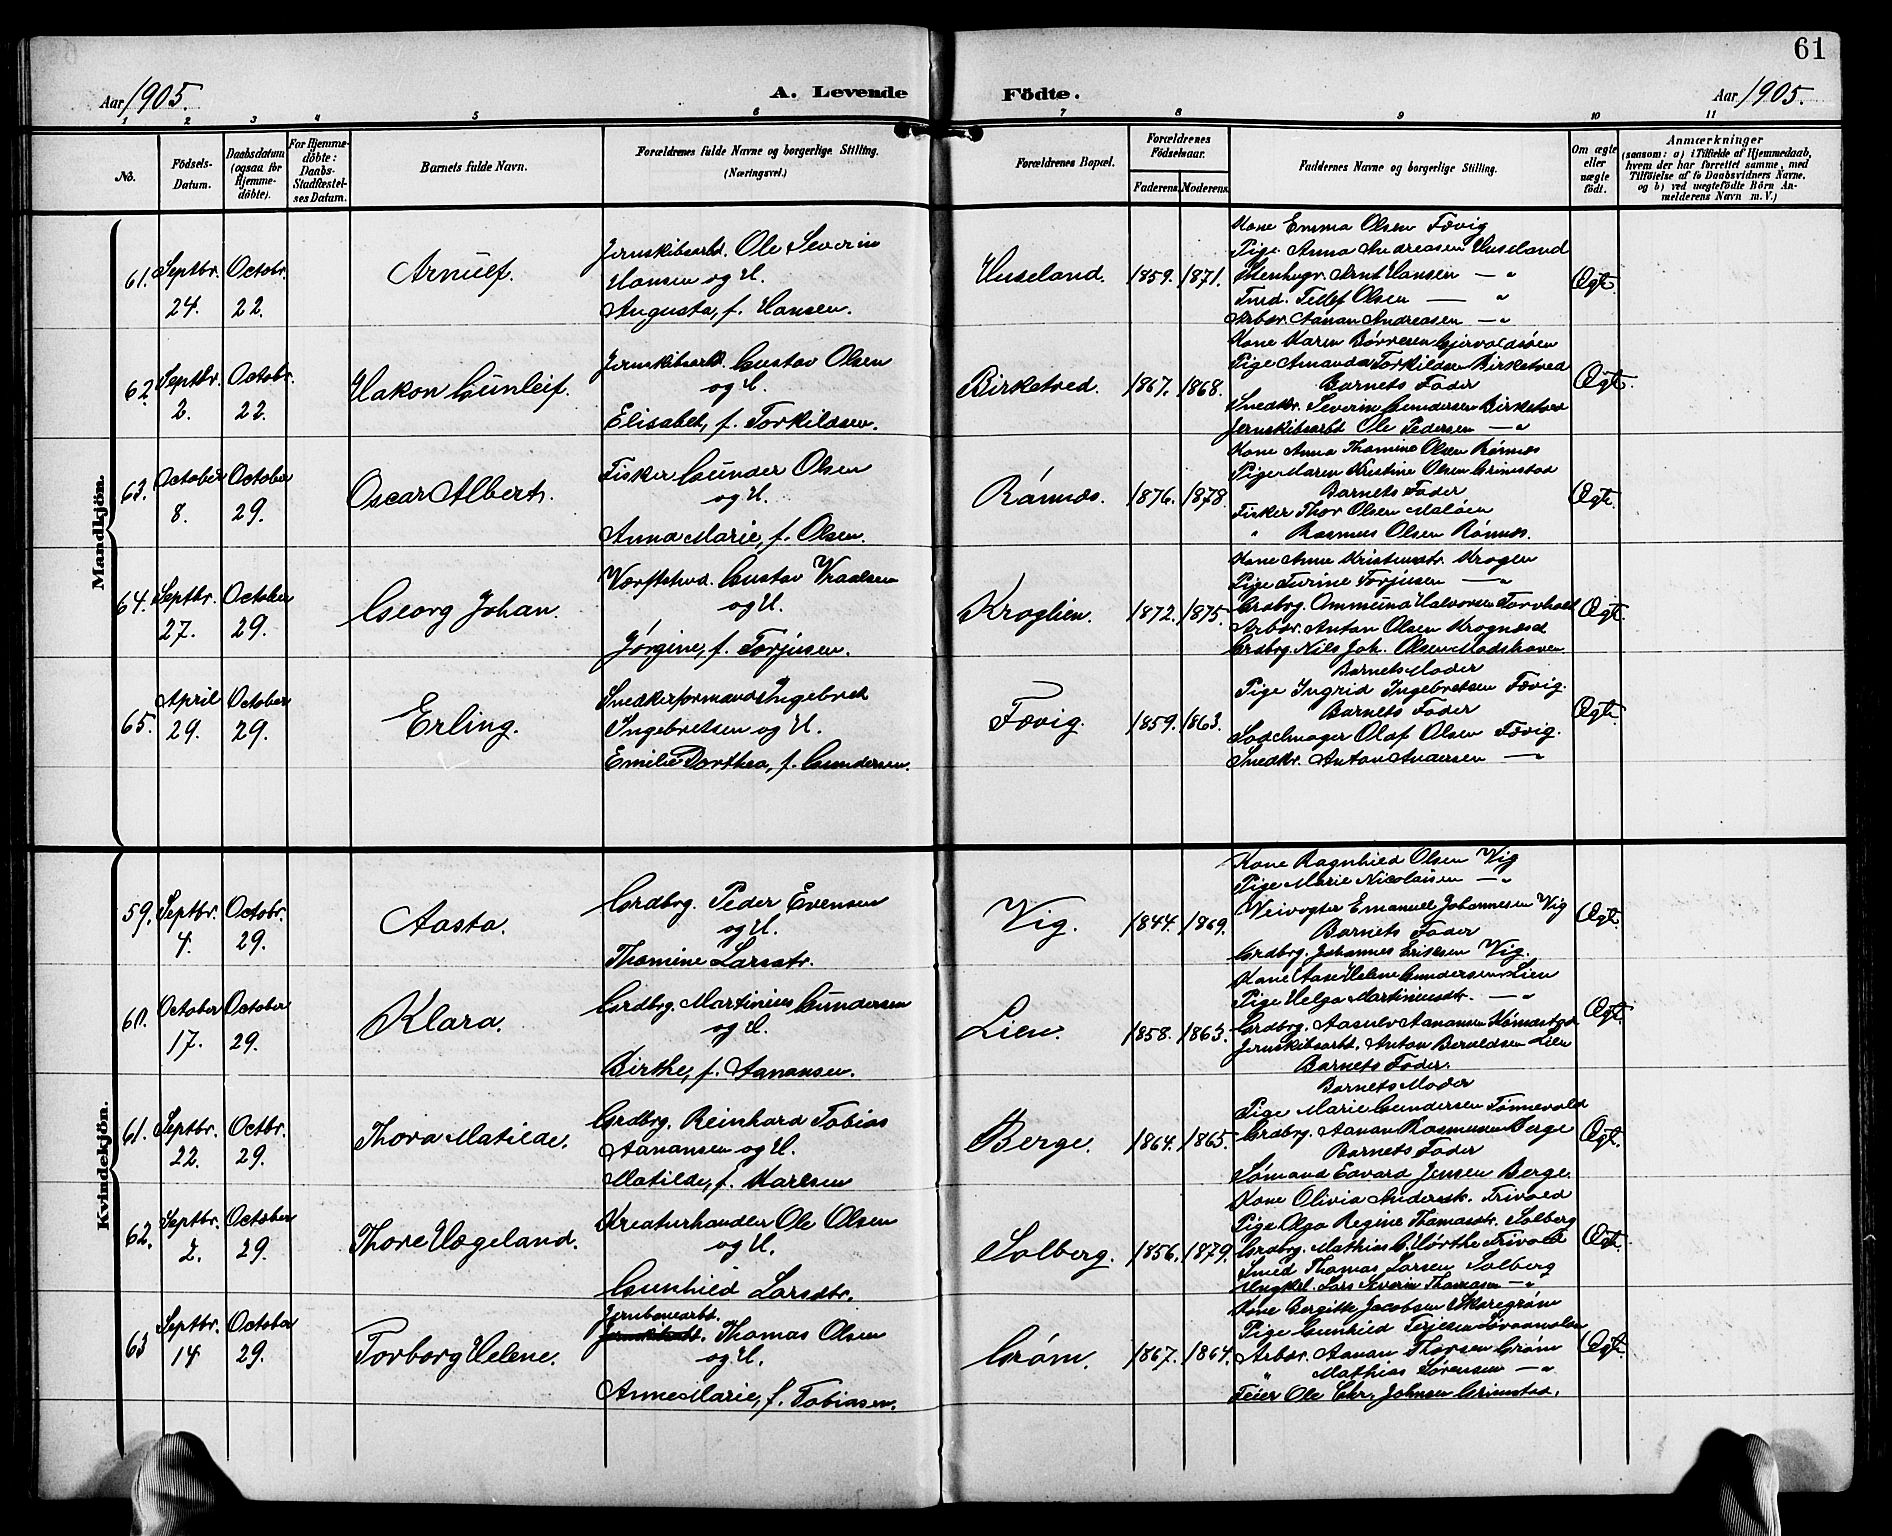 61
Aar 1905.
A. Levende Födte.
Aar 1905.
1 2 3 4 5 6 7 8 9 10 11
No.
Födsels-Datum.
Daabsdatum (ogsaa for Hjemmedöbte).
For Hjemmedöbte: Daabs-Stadfæstelses Datum.
Barnets fulde Navn.
Forældrenes fulde Navne og borgerlige Stilling. (Næringsvei.)
Forældrenes Bopæl.
Forældrenes Födselsaar.
Faderens. Moderens.
Faddernes Navne og borgerlige Stilling.
Om ægte eller uægte födt.
Anmærkninger
(saasom: a) i Tilfælde af Hjemmedaab, hvem der har forrettet samme, med Tilföielse af to Daabsvidners Navne, og b) ved uægtefödte Börn Anmelderens Navn m. V.)
Mandkjön.
61. Septbr. 24. Octobr. 22.
Arnulf.
Jernskibsarbd. Ole Severin
Hansen og H.
Augusta, f. Hansen.
Huseland. 1859. 1871.
Kone Emma Olsen Fævig
Pige Anna Andreasen Huseland
Stenhugr. Arnt Hansen — "
Smed. Tellef Olsen — "
Arbdr. Aanan Andreasen — "
Ægt.
62. Septbr. 2. Octobr. 22.
Hakon Gunleif.
Jernskibsarb. Gustav Olsen
og H.
Elisabet, f. Torkildsen.
Birketved. 1867. 1868.
Kone Karen Börresen Gjervoldsøen
Pige Amanda Torkildsen Birketved
Barnets Fader
Snedkr. Severin Gundersen Birketved
Jernskibsarbd Ole Pedersen — "
Ægt.
63. October 8. October 29.
Oscar Albert.
Fisker Gunder Olsen
og H.
Anna Marie, f. Olsen.
Rønnes. 1876. 1878
Kone Anna Thomine Olsen Rønnes
Pige Maren Kristine Olsen Grimstad
Barnets Fader
Fisker Thor Olsen Maløen
" Rasmus Olsen Rønnes.
Ægt.
64. Septbr. 27. October 29.
Georg Johan.
Værftstmd. Gustav Vraalsen
og H.
Jørgine, f. Torjusen.
Kroglien. 1872. 1875.
Kone Anne Kristensdtr. Krogen
Pige Turine Torjusen — "
Grdbrg. Ommund Halvorsen
Arbdr. Anton Olsen Krognæsd
Grdbrg. Nils Joh. Olsen Madshaven
Ægt.
65. April 29. October 29.
Erling.
Snedkerformand Ingebret
Ingebretsen og H.
Emilie Dorthea, f. Gundersen.
Fævig. 1859. 1863.
Barnets Moder
Pige Ingrid Ingebretsen Fævig.
Barnets Fader
Sadelmager Olaf Olsen Fævig.
Snedkr. Anton Andersen — "
Ægt.
Kvindekjön.
59. Septbr. 4. Octobr. 29.
Aasta.
Grdbrg. Peder Evensen
og H.
Thomine Larsdtr.
Vig. 1844. 1869.
Kone Ragnhild Olsen Vig
Pige Marie Nicolaisen — "
Veivogter Emanuel Johannesen Vig
Barnets Fader
Grdbrg. Johannes Eriksen Vig.
Ægt.
60. October 17. October 29.
Klara.
Grdbrg. Martinius Gundersen
og H.
Birthe, f. Aanansen.
Lien. 1858. 1863.
Kone Aase Helene Gundersen Lien
Pige Helga Martiniusdt. — "
Grdbrg. Aasulv Aanansen
Jernskibsarbd. Anton Beroldsen Lien
Barnets Fader.
Ægt.
61. Septbr. 22. Octbr. 29.
Thora Matilde.
Grdbrg. Reinhard Tobias
Aanansen og H.
Matilde, f. Karlsen
Berge. 1864. 1865.
Barnets Moder
Pige Marie Gundersen Tønnevold
Grdbrg. Aanan Rasmussen Berge
Barnets Fader
Sømand Edvard Jensen Berge.
Ægt.
62. Septbr. 2. October 29.
Thore Hægeland.
Kreaturhandler Ole Olsen
og H.
Gunhild Larsdtr.
Solberg. 1856. 1879.
Kone Olivia Andersdt. Trivold
Pige Olga Regine Thomasdtr. Solberg
Grdbrg. Mathias G. Mørthe Trivold
Smed Thomas Larsen Solberg
Ungkrl. Lars Severin Thomasen — "
Ægt.
63 Septbr. 14 October 29.
Torborg Helene.
Jernbanearbd.
Thomas Olsen
og H.
Anne Marie, f. Tobiasen.
Grøm. 1867. 1864.
Kone Bergitte Jacobsen Skaregrøm
Pige Gunhild Terjesen
Arbdr. Aanan Thorsen Grøm
" Mathias Sørensen — "
Feier Ole Chr. Johnsen Grimstad.
Ægt.